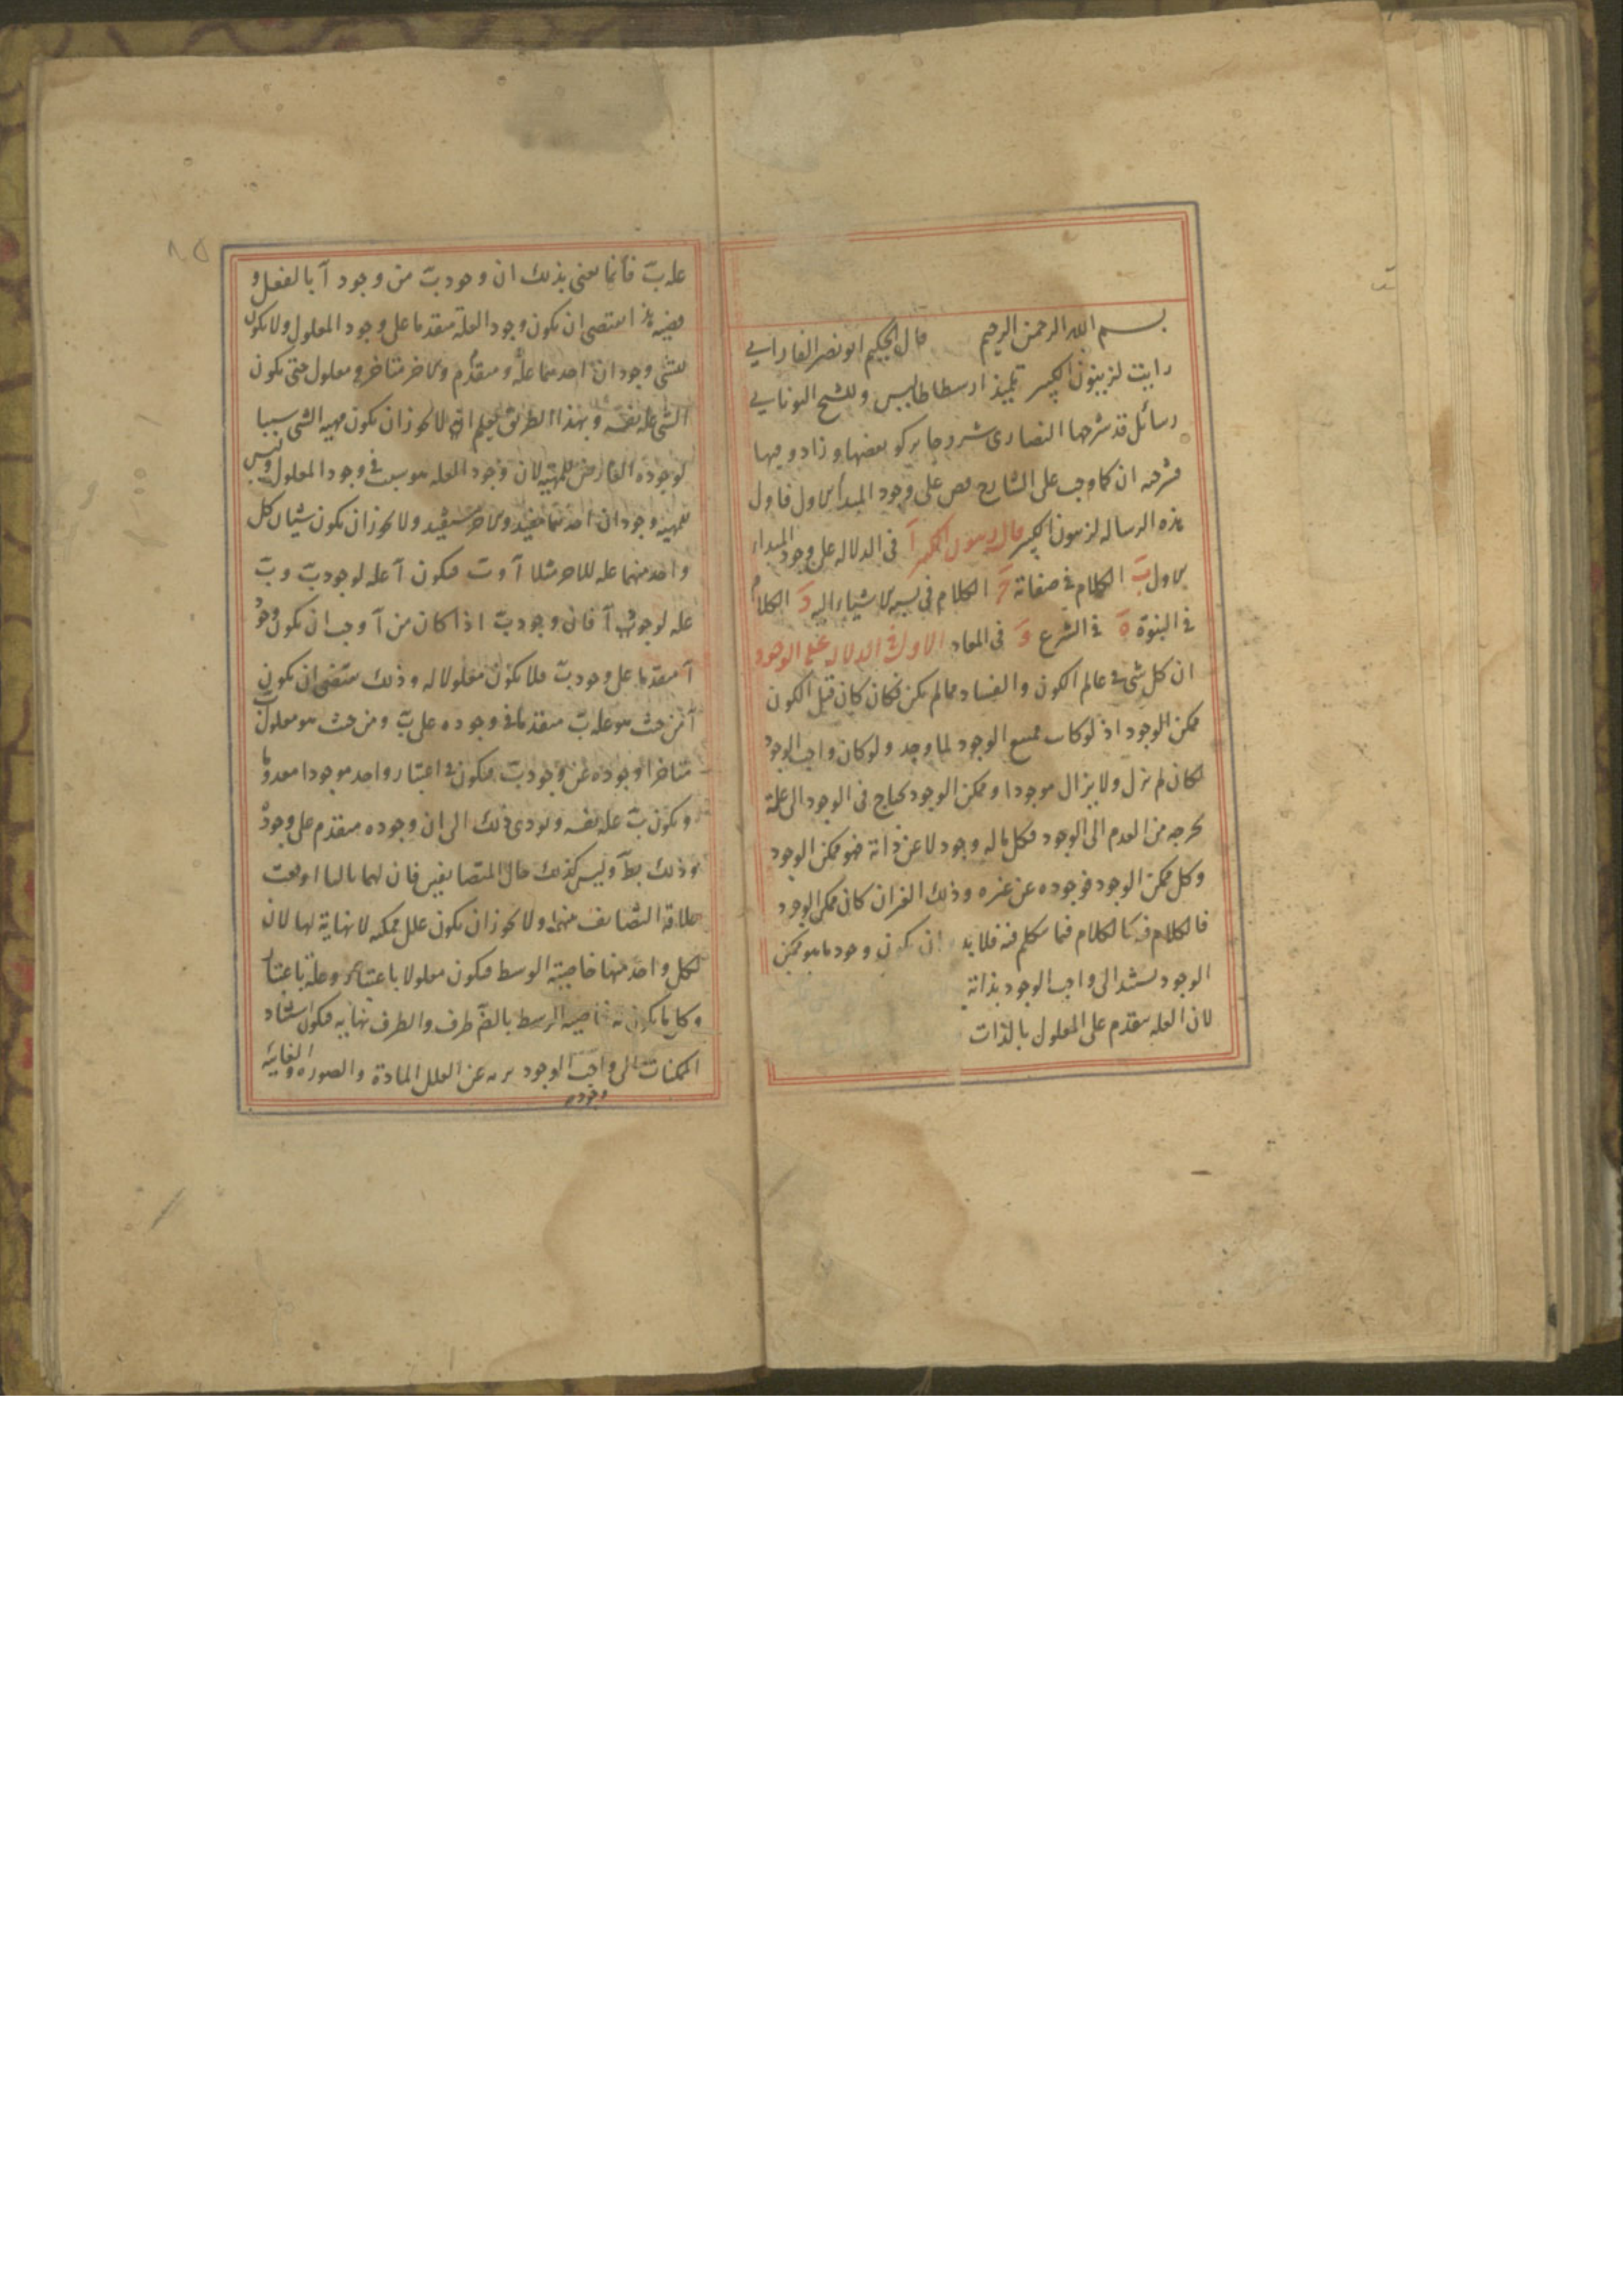 بسم الله الرحمن الرحيم قال الحكيم ابو نصر الفارابي
رايت لزينون الكبير تلميذ ارسطاطاليس وللشيخ اليوناني
رسائل قد شرحها النصارى شروحا تركوا بعضها وزادو فيها
فشرحته انا كما وجب على الشارح نص على وجود المبدأ الاول فاول
هذه الرساله لزينون الكبير قال زينون الكبير آ في الدلاله على وجود المبداء
الاول ب الكلام في صفاته ج الكلام في نسبه الاشياء اليه د الكلام
في النبوة ه في الشرع و في المعاد الاول في الدلاله على الوجود
ان كل شى في عالم الكون والفساد مما لم يكن فكان كان قبل الكون
ممكن الوجود اذ لو كان ممتنع الوجود لما وجد ولو كان واجب الوجود
لكان لم يزل ولا يزال موجودا وممكن الوجود يحتاج فى الوجود الى علة
يخرجه من العدم الى الوجود فكل ماله وجود لا عن ذاته فهو ممكن الوجود
وكل ممكن الوجود فوجوده عن غيره وذلك الغير ان كان ممكن الوجود
فالكلام فيه كالكلام فيما نتكلم فيه فلا بد ان يكون وجود ما هو ممكن
الوجود يستند الى واجب الوجود بذاته
لان العله يتقدم على المعلول بالذات
علة ب فانما نعنى بذلك ان وجود ب من وجود آ بالفعل و
قضيه هذا يقتضى ان يكون وجود العلة متقدما على وجود المعلول ولا يكون
للشى وجودان احدهما علة ومتقدم والاخر متاخر ومعلول حتى يكون
الشى علة نفسه وبهذا الطريق يعلم انه لا يجوز ان يكون مهيه الشى سببا
لوجوده العارض للمهيه لان وجود العله هو سبب في وجود المعلول وليس
للمهيه وجودان احدهما مفيد والاخر مستفيد ولا يجوز ان يكون شيئان كل
واحد منهما عله للاخر مثلا آ و ب فيكون آ علة لوجود ب و ب
علة لوجود آ فان وجود ب اذا كان من آ وجب ان يكون وجود
آ متقدما على وجود ب فلا يكون معلولا له وذلك يقتضى ان يكون
آ من حيث هو علة ب متقدما في وجوده على ب ومن حيث هو معلول ب
متاخرا وجوده عن وجود ب فيكون في اعتبار واحد موجودا معدوما
ويكون ب علة نفسه ويودى ذلك الى ان وجوده متقدم على وجوده
وذلك بط وليس كذلك حال المتضايفين فان لهما ثالثا اوقعت
علاقة التضايف بينهما ولا يجوز ان يكون علل ممكنه لا نهاية لها لان
لكل واحد منها خاصيته الوسط فيكون معلولا باعتبار وعلة باعتبار
وكل ما يكون له خاصيه الوسط بالضرورة طرف والطرف نهايه فيكون استناد
الممكنات الى واجب الوجود برىء عن العلل المادة والصورة والغائية
وجوده